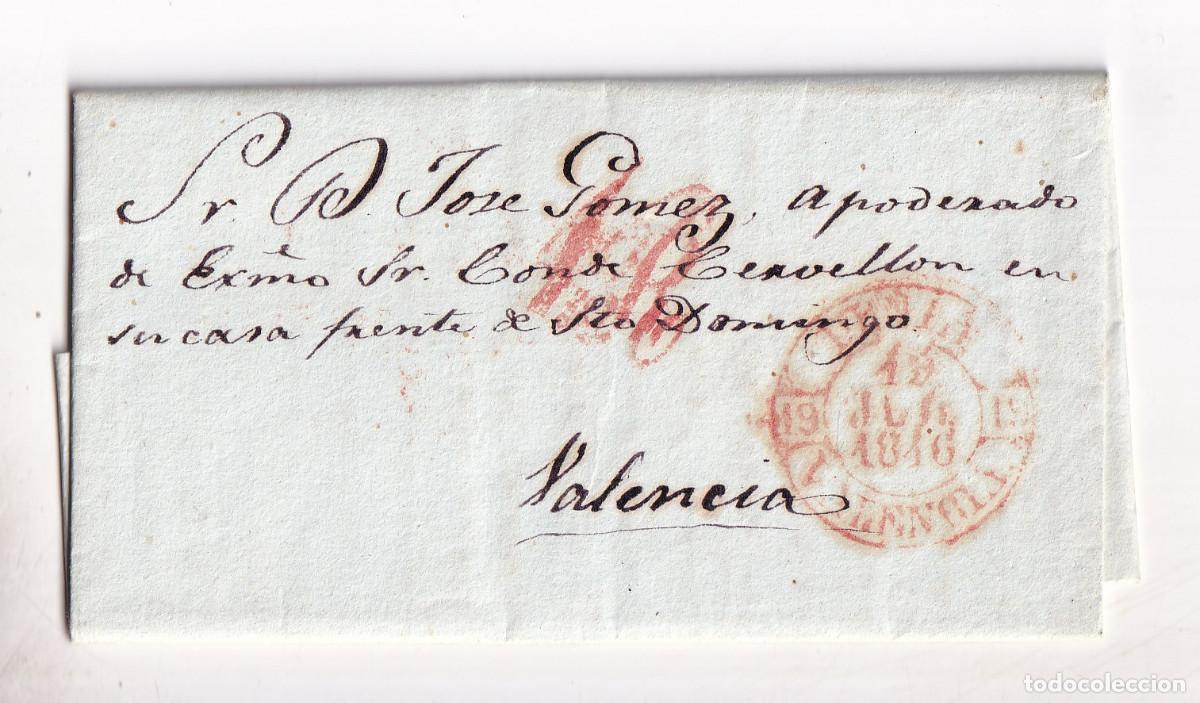 Sr. D. Jose Gomez, apoderado
de Exmo Sr. Conde Cervellon en
su casa frente de Sto Domingo
Valencia
19 19
12
JUL
1846
VALENCIA
todocoleccion